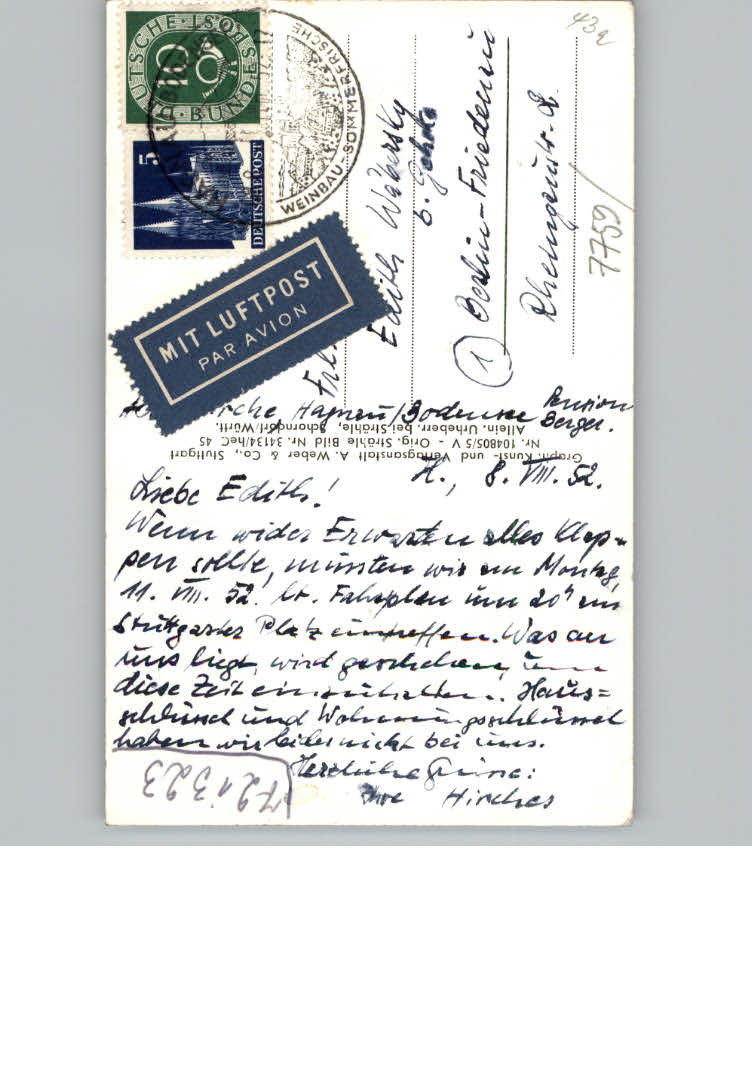 43a
DEUTSCHE BUNDESPOST
DEUTSCHE POST
WEINBAU - SOMMERFRISCHE
MIT LUFTPOST
PAR AVION
Frl.
Edith
b. Gehrke
(1) Berlin-Friedenau
Rheingaustr. 8.
7759/
Hagnau/Bodensee Pension
Berger.
Graph. Kunst- und Verlagsanstalt A. Weber & Co., Stuttgart
Nr. 104805/5 V - Orig. Strähle Bild Nr. 34134/heC 45
Allein. Urheber. bei Strähle, Schorndorf/Württ.
H., 8. VIII. 52.
Liebe Edith!
Wenn wider Erwarten alles klap-
pen sollte, müssten wir am Montag,
11. VIII. 52. lt. Fahrplan um 20h am
Stuttgarter Platz eintreffen. Was an
uns liegt, wird geschehen, um
diese Zeit einzuhalten. Haus=
schlüssel und Wohnungsschlüssel
haben wir leider nicht bei uns.
Herzliche Grüsse:
Ihre Hirches